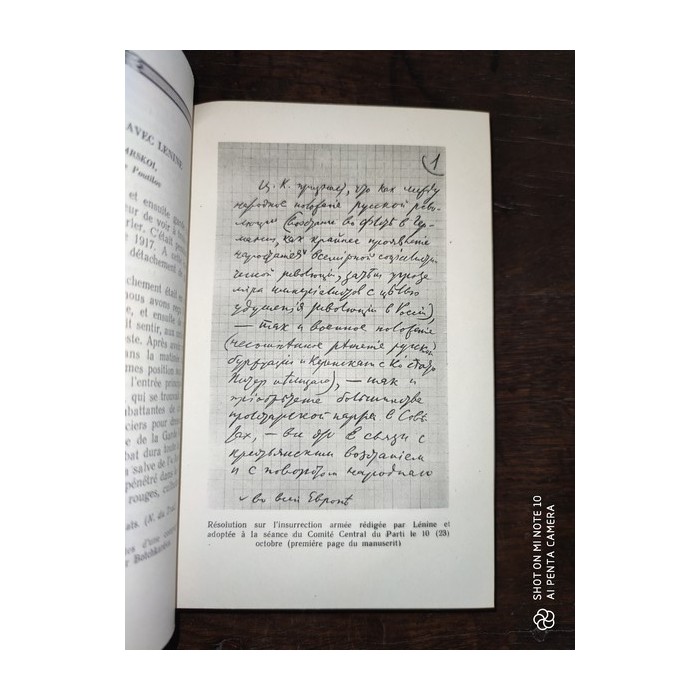 AVEC LENINE
ARSKOI,
e Poutilov
et ensuite
eur de voir à
rier. C'était
1917. A
détachement de
chement était
nous avons
e, et ensuite de
it sentir, aux
ste. Après
dans la matinée
mes position
l'entrée
qui se
mbattantes de
ciers pour
e de la Garde
bat dura toute
a salve de
pénétré dans
rouges,
ats. (N. du Trad.
es d'une
r Botchkareva.
1
Ц. К. признает, что как между
народное положение русской рево-
люции (восстание во флоте в Гер-
мании, как крайнее проявление
нарастания всемирной социалисти
ческой революции, затем угроза
мира империалистов с целью
удушения революции в России),
— так и военное положение
(несомненное решение русской
буржуазии и Керенского с Ко сдать
Питер немцам), — так и
приобретение большинства
пролетарской партией в Сове
тах, — все это в связи с
крестьянским восстанием
и с поворотом народного
во всей Европѣ
Résolution sur l'insurrection armée rédigée par Lénine et
adoptée à la séance du Comité Central du Parti le 10 (23)
octobre (première page du manuscrit)
SHOT ON MI NOTE 10
AI PENTA CAMERA